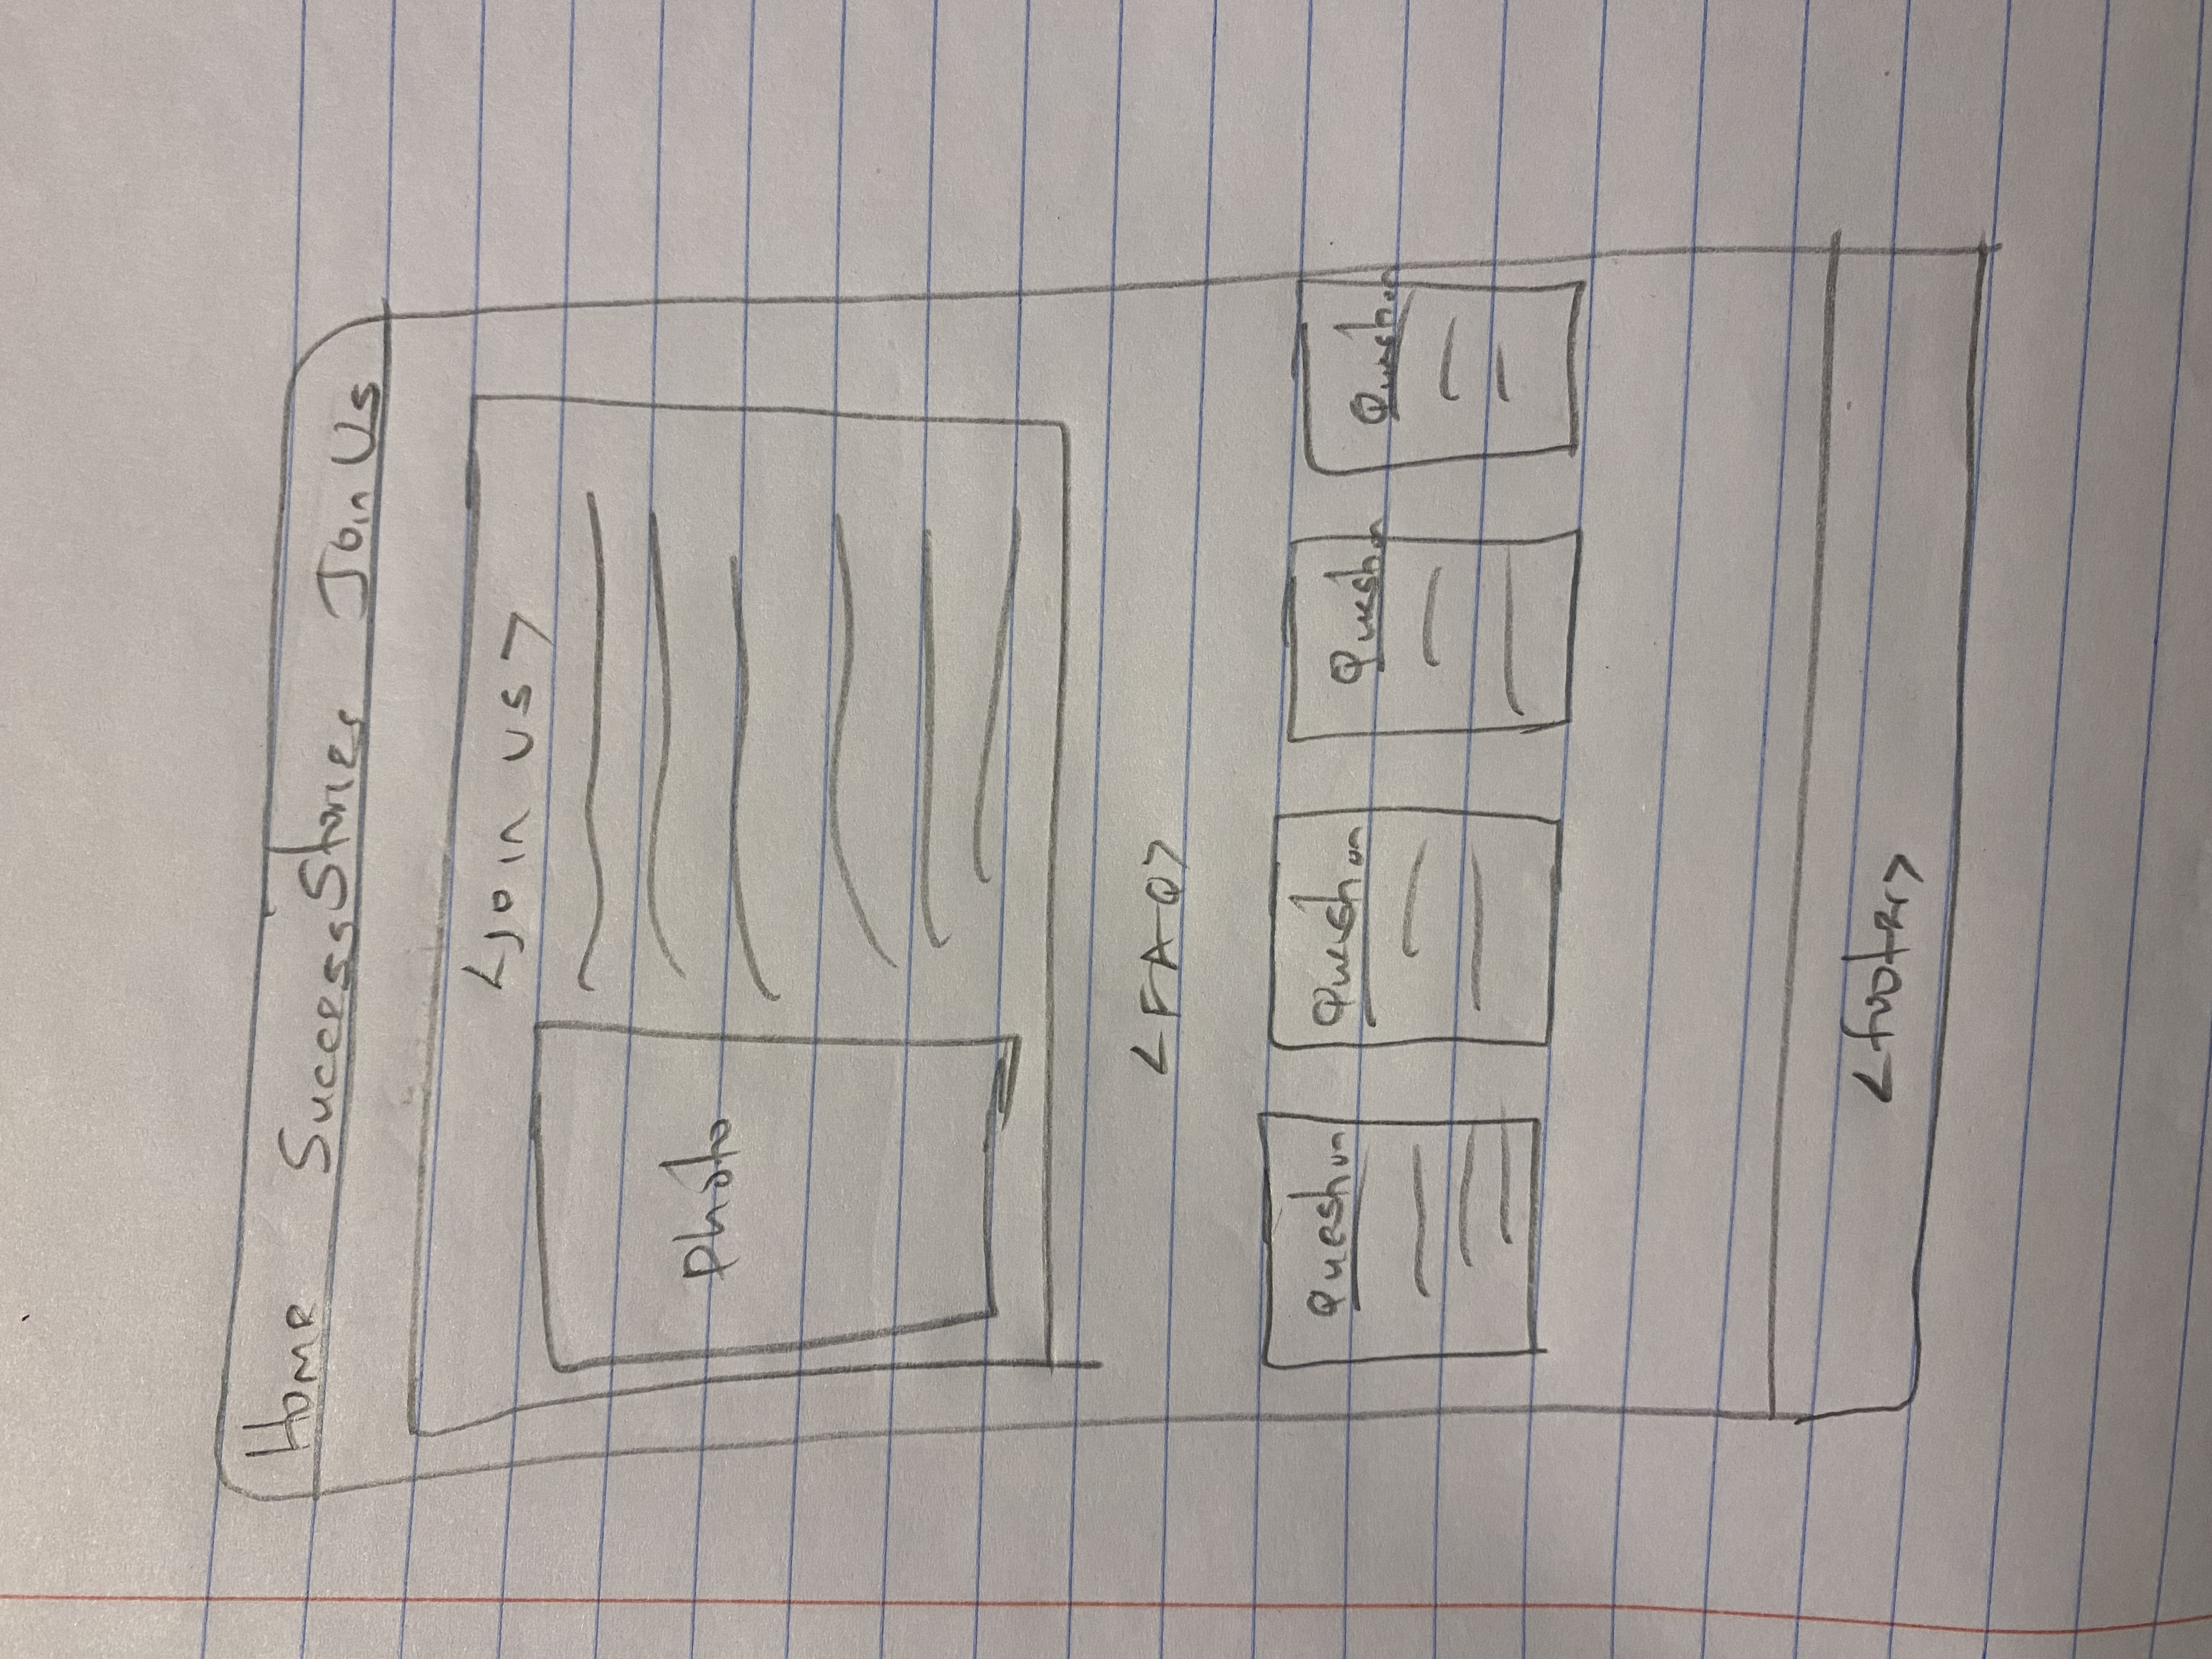 Home Success Stories Join Us
<Join us>
Photo
<FAQ>
Question Question Question Question
<footer>